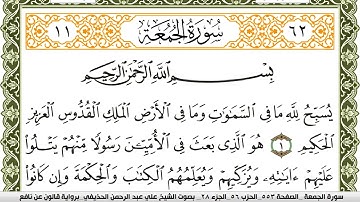 ١١ سُورَةُ الجُمُعَةِ ٦٢
بِسْمِ اللَّهِ الرَّحْمَٰنِ الرَّحِيمِ
يُسَبِّحُ لِلَّهِ مَا فِي السَّمَٰوَٰتِ وَمَا فِي الْأَرْضِ الْمَلِكِ الْقُدُّوسِ الْعَزِيزِ
الْحَكِيمِ ١ هُوَ الَّذِي بَعَثَ فِي الْأُمِّيِّينَ رَسُولًا مِّنْهُمْ يَتْلُوا
عَلَيْهِمْ ءَايَٰتِهِ وَيُزَكِّيهِمْ وَيُعَلِّمُهُمُ الْكِتَٰبَ وَالْحِكْمَةَ وَإِن كَانُوا
سورة الجمعة _ الصفحة ٥٥٣ _ الحزب ٥٦ _ الجزء ٢٨ _ بصوت الشيخ علي عبد الرحمن الحذيفي _ برواية قالون عن نافع